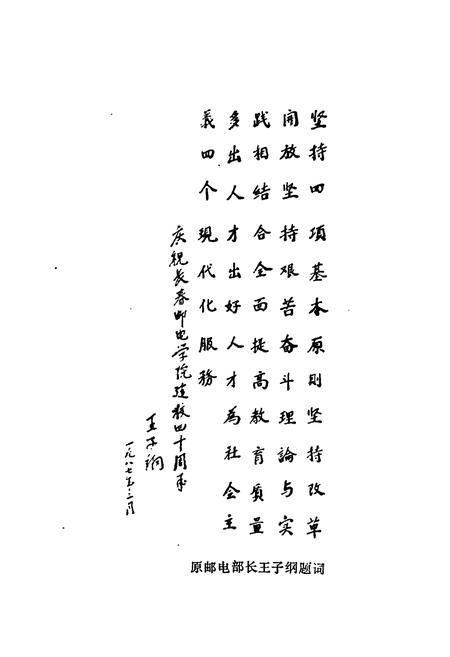 坚持四項基本原则坚持改革
開放坚持艰苦奋斗理論与实
践相结合全面提高教育质量
多出人才出好人才為社会主
義四个現代化服務
庆祝长春邮电学院建校四十周年
王子纲
一九八七年二月
原邮电部长王子纲题词